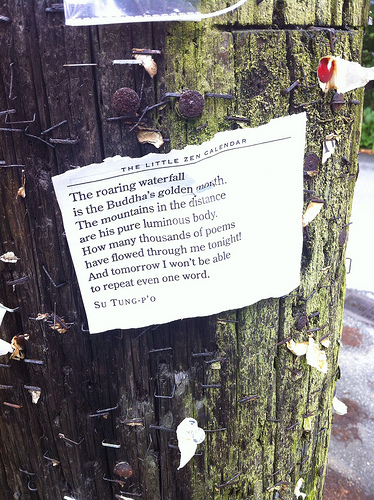 THE LITTLE ZEN CALENDAR
The roaring waterfall
is the Buddha's golden mouth.
The mountains in the distance
are his pure luminous body.
How many thousands of poems
have flowed through me tonight!
And tomorrow I won't be able
to repeat even one word.
SU TUNG-P'O